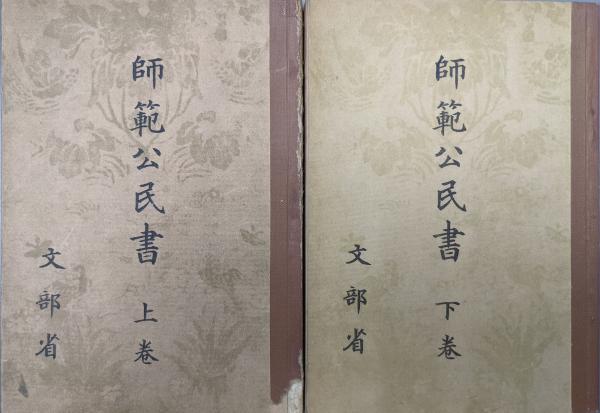 師範公民書 上卷
文部省
師範公民書 下卷
文部省